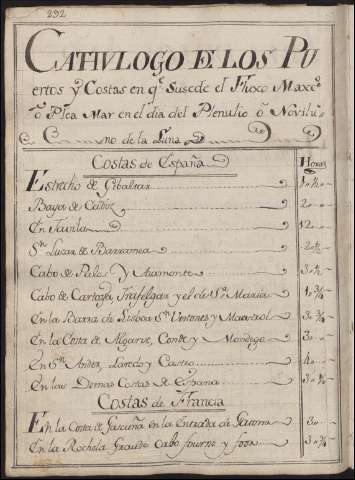 292
CATHVLOGO DE LOS PU
ertos y Costas en q.e Susede el Fluxo Max.o
ô Plea Mar en el dia del Plenulio ô Novilu
no de la Luna
Costas de España
Horas
Estrecho de Gibaltar 1 0 ½
Baya de Cadiz 2 0
En Tavila 12
Sn. Lucar de Barramea 2 0 ½
Cabo de Palos y Aiamonte 3 0 ½
Cabo de Cartaxa Trafelgar y el de Sta. Maria 1 0 ¾
En la Barra de Lisboa Sn.
En la Costa de Algarve, Conde y Mondego 3 0
En Sn. Ander, Laredo y Castro 4 0
En las Demas Costas de España 3 0
Costas de Francia
En la Costa de Gascuña en la Entrada de Garona 3 0
En la Rochela Grande Cabo 3 0 ¾